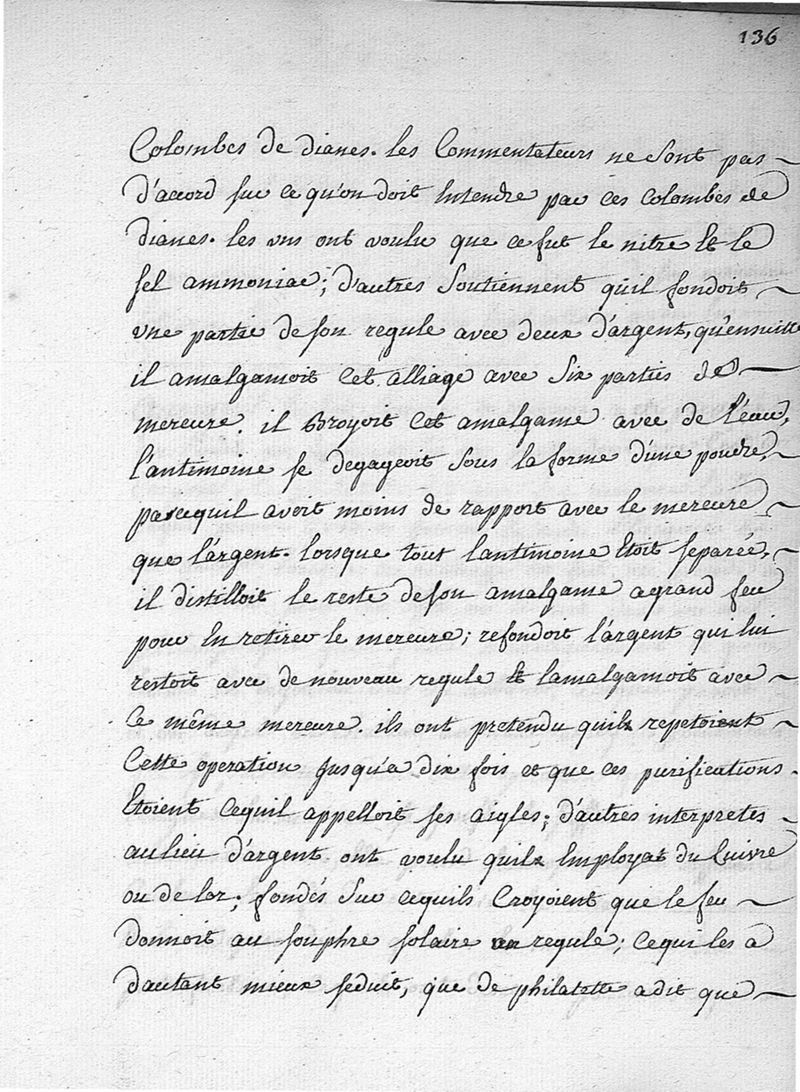 136
Colombes de dianes. les Commentateurs ne sont pas
d'accord sur ce qu'on doit Entendre par ces Colombes de
dianes. les uns ont voulu que ce fut le nitre Et le
sel ammoniac; d'autres Soutiennent qu'il fondoit
une partie de son regule avec deux d'argent, qu'ensuitte
il amalgamoit Cet alliage avec Six parties de
mercure. il Broyoit Cet amalgame avec de l'eau,
l'antimoine se degageoit Sous la forme d'une poudre,
parcequil avoit moins de rapport avec le mercure
que l'argent. lorsque tout lantimoine Etoit separée,
il distilloit le reste de son amalgame a grand feu
pour En retirer le mercure; refondoit l'argent qui lui
restoit avec de nouveau regule Et lamalgamoit avec
Ce même mercure. ils ont pretendu quil repetoient
Cette operation Jusqu'a dix fois et que ces purifications
Etoient cequil appelloit ses aigles; d'autres interpretes
au lieu d'argent ont voulu quil Employat du Cuivre
ou de lor; fondés Sur cequils Croyoient que le feu
donnoit au souphre solaire un regule; cequi les a
dautant mieux seduit, que de philalette a dit que